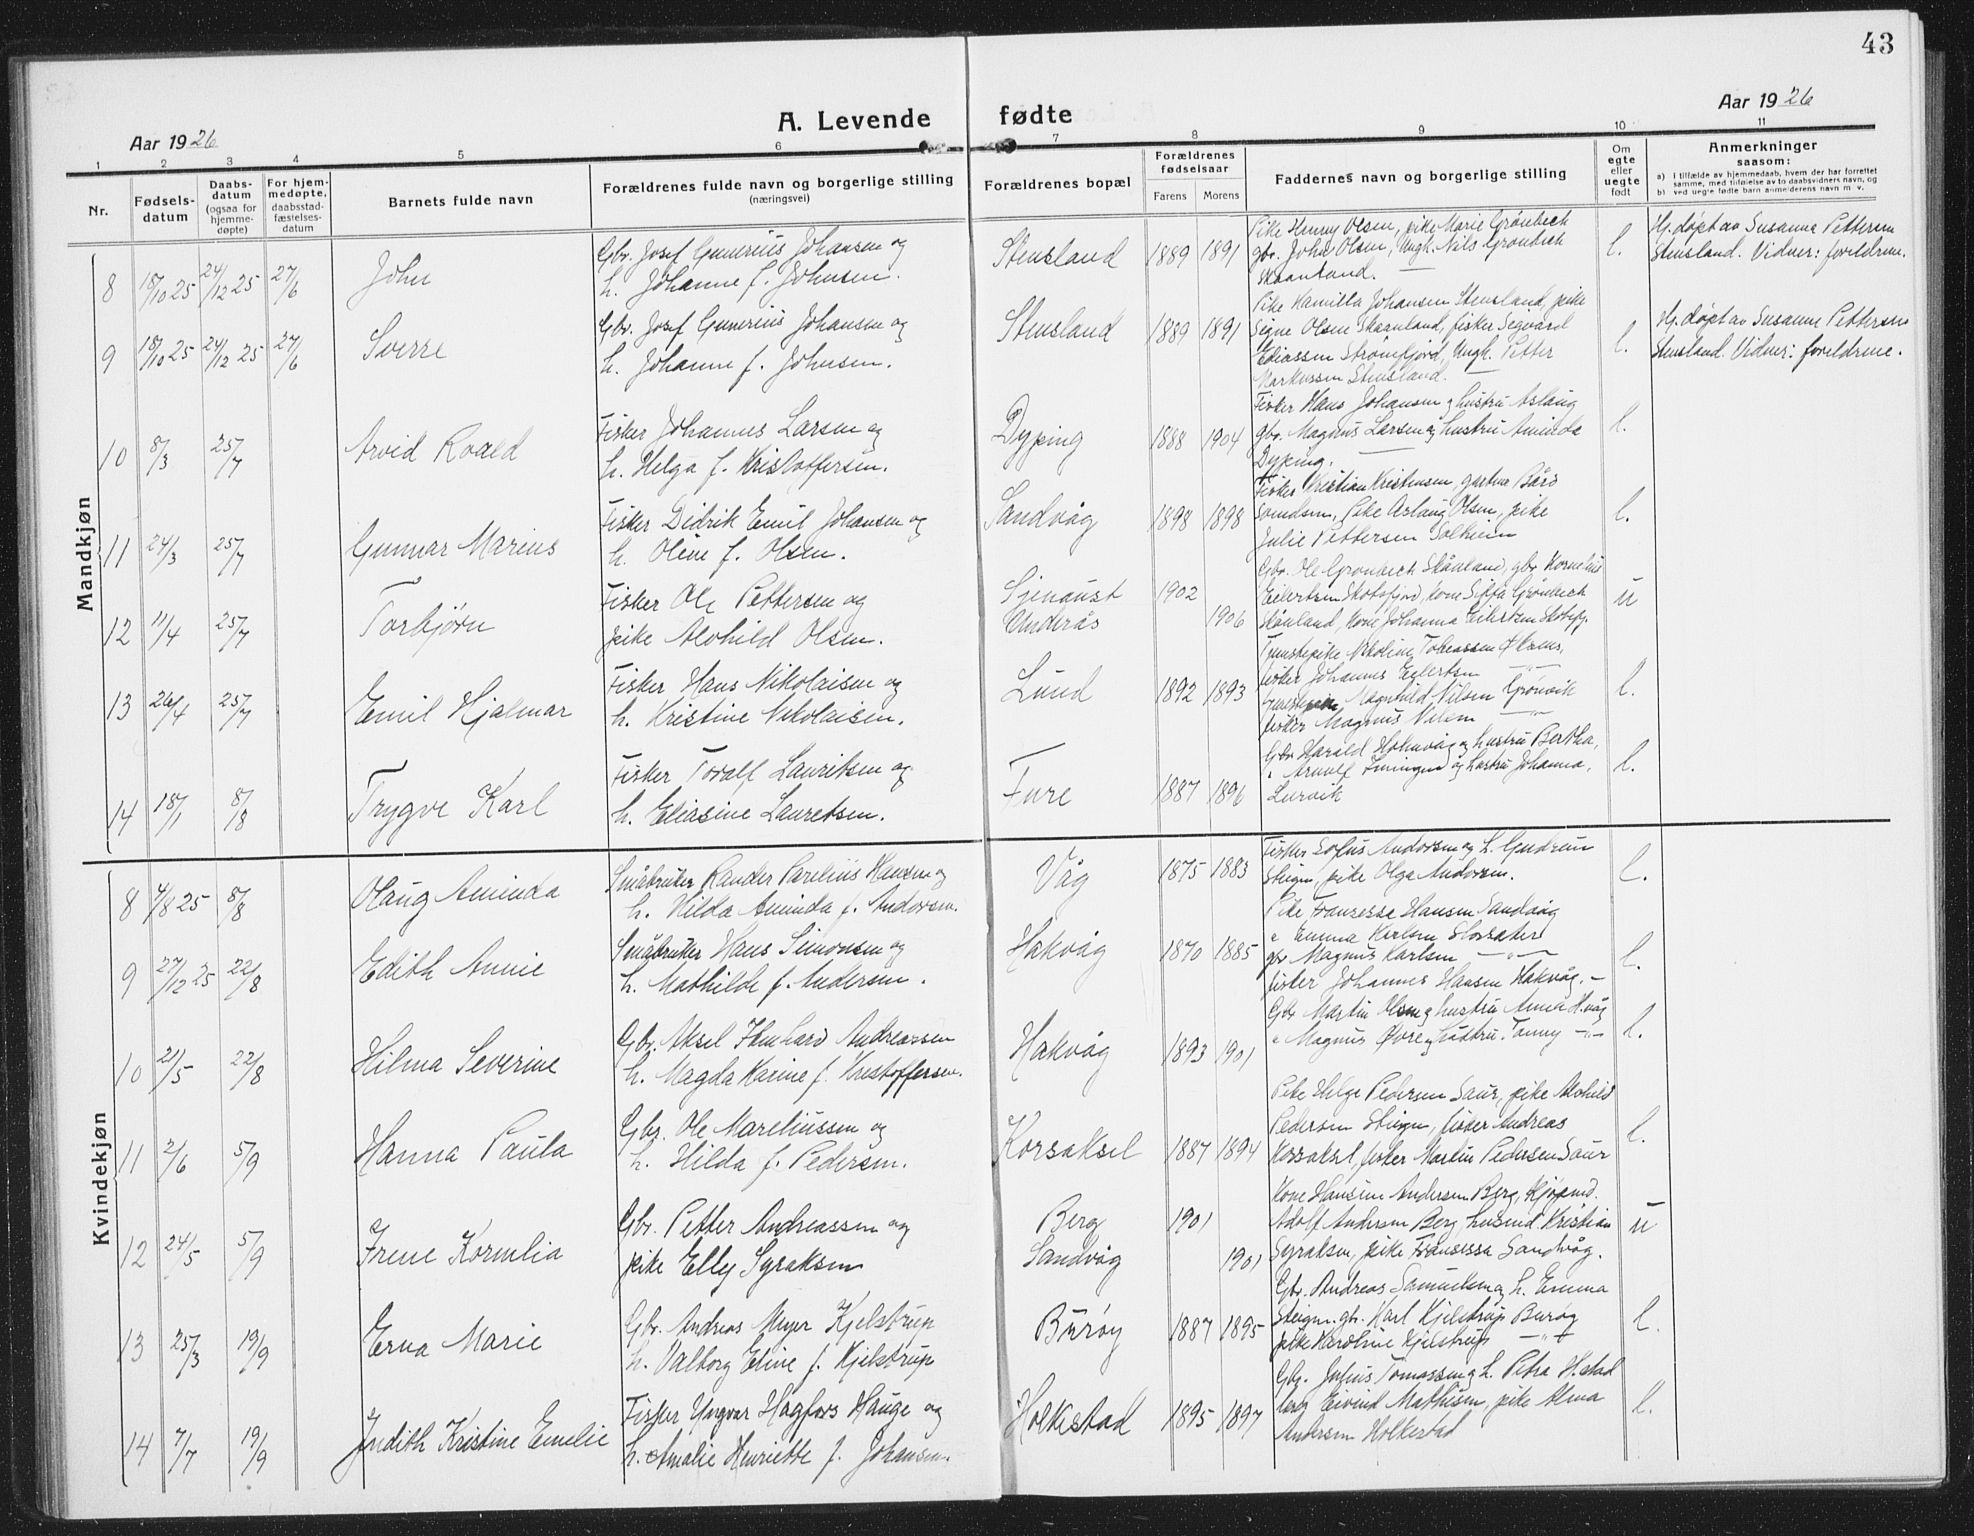 43
A. Levende fødte
Aar 1926
Aar 1926
1 2 3 4 5 6 7 8 9 10 11
Nr.
Fødsels-
datum
Daabs-
datum
(ogsaa for
hjemme-
døpte)
For hjem-
medøpte,
daabsstad-
fæstelses-
datum
Barnets fulde navn
Forældrenes fulde navn og borgerlige stilling
(næringsvei)
Forældrenes bopæl
Forældrenes
fødselsaar
Farens Morens
Faddernes navn og borgerlig stilling
Om
egte
eller
uegte
født
Anmerkninger
saasom:
a) i tilfælde av hjemmedaab, hvem der har forrettet
samme, med tilføielse av to daabsvidners navn, og
b) ved uegte fødte barn anmelderens navn m. v.
Mandkjøn
8 18/10 25 24/12 25 27/6 John
Gbr. Josef Gunerius Johansen og
h. Johanne f. Johnsen.
Stensland 1889 1891
Pike Henny Olsen, pike Marie Grønbech
gbr. John Olsen, Ungk. Nils Grønbech
Skaanland.
l.
Hj. døpt av Susanna Pettersen
Stensland. Vidner: foreldrene.
9 18/10 25 24/12 25 27/6 Sverre
Gbr. Josef Gunerius Johansen og
h. Johanne f. Johnsen.
Stensland 1889 1891
Pike Hamilla Johansen Stensland, pike
Signe Olsen Skaanland, fisker Segvard
Ediassen Strømfjord, Ungk. Petter
Markussen Stensland.
l.
Hj. døpt av Susanne Pettersen
Stensland. Vidner: foreldrene.
10 8/3 25/7 Arvid Roald
Fisker Johannes Larsen og
h. Helga f. Kristoffersen.
Dyping 1888 1904
Fisker Hans Johansen og hustru Aslaug
gbr. Magnus Larsen og hustru Aminda
Dyping.
l.
11 24/3 25/7 Gunnar Marius
Fisker Didrik Emil Johansen og
h. Oline f. Olsen.
Sandvåg 1898 1898
Fisker Kristian Kristensen, gartner Bård
Svendsen, pike Aslaug Olsen, pike
Julie Pettersen Solheim
l.
12 11/4 25/7 Torbjørn
Fisker Ole Pettersen og
pike Alvhild Olsen.
Sjenaust 1902
Underås 1906
Gbr. Ole Grønbech Skånland, gbr Kornelius
Eilertsen Skotsfjord, kone Grønbech
Skånland, kone Johanna Eilertsen Skotsfj.
u
13 26/4 25/7 Emil Hjalmar
Fisker Hans Nikolaisen og
h. Kristine Nikolaisen.
Lund 1892 1893
Tjenestepike Nikoline Tobiassen
fisker Johannes Eglertsen —"—
Magnhild Nilsen Grønvik
fisker Magnus Nilsen —"—
l.
14 18/1 8/8 Trygve Karl
Fisker Toralf Lauritsen og
h. Eliasine Lauretsen.
Fure 1887 1896
Gbr Harald Holmvåg og hustru Bertha,
" Arnulf og hustru Johanna,
Lurvik
l.
Kvindekjøn
8 4/8 25 8/8 Olaug Aminda
Småbruker Rander Parelius Hansen og
h. Hilda Aminda f. Andorsen.
Våg 1875 1883
Fisker Sofus Andorsen og h. Gudrun
Steigen, pike Olga Andorsen.
l.
9 27/12 25 22/8 Edith Annie
Småbruker Hans Simonsen og
h. Mathilde f. Andersen.
Hakvåg 1870 1885
Pike Fransessa Hansen Sandvåg
" Emma Karlsen
gbr Magnus Karlsen —"—
fisker Johannes Hansen Hakvåg. —
l.
10 21/5 22/8 Hilma Severine
Gbr. Aksel Andreassen
h. Magda Karine f. Kristoffersen.
Hakvåg 1893 1901
Gbr Martin Olsen og hustru Anna H.våg
" Magnus Øvre og hustru. Tonny —"—
l.
11 2/6 5/9 Hanna Paula
Gbr. Ole Mareliussen og
h. Hilda f. Pedersen.
Korsaksel 1887 1894
Pike Helge Pedersen Saur, pike Alvhild
Pedersen Steigen, fisker Andreas
Korsaksel, fisker Martin Pedersen Saur
l.
12 24/5 5/9 Irene Kornelia
Gbr. Petter Andreassen og
pike Elly Syraksen
Berg 1901
Sandvåg 1901
Kone Hansine Andersen Berg, Kjøpmd.
Adolf Andersen Berg, husmd. Kristian
Syraksen, pike Fransessa Sandvåg.
u
13 25/3 19/9 Erna Marie
Gbr. Andreas Meyer Kjelstrup
h. Valborg Eline f. Kjelstrup
Burøy 1887 1895
Gbr. Andreas Samuelsen og h. Emma
Steigen. gbr. Karl Kjelstrup Burøy
pike Karoline Kjelstrup —"—
l.
14 7/7 19/9 Judith Kristine Emelie
Fisker Yngvar Hagfors Hauge og
h. Amalie Henriette f. Johansen.
Holkestad 1895 1897
Gbr. Julius Tomassen og h. Petra H.stad
Eivind Mathisen, pike Alma
Andersen Holkestad
l.